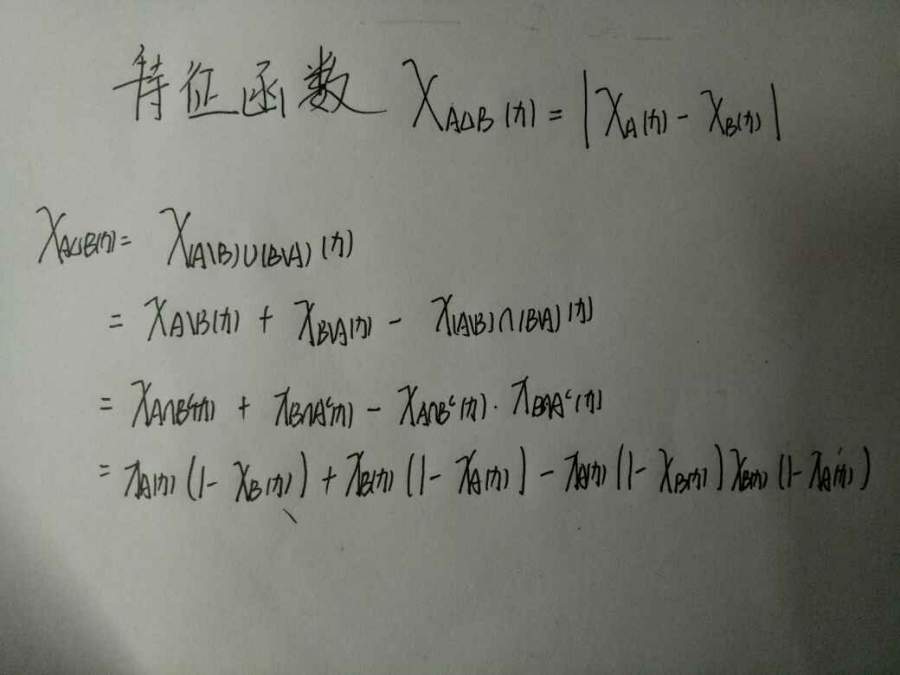 特征函数 χ_{A△B}(x) = |χ_A(x) - χ_B(x)|
χ_{A△B}(x) = χ_{(A\B)∪(B\A)}(x)
= χ_{A\B}(x) + χ_{B\A}(x) - χ_{(A\B)∩(B\A)}(x)
= χ_{A∩B^c}(x) + χ_{B∩A^c}(x) - χ_{A∩B^c}(x) · χ_{B∩A^c}(x)
= χ_A(x) (1 - χ_B(x)) + χ_B(x) (1 - χ_A(x)) - χ_A(x) (1 - χ_B(x)) χ_B(x) (1 - χ_A(x))